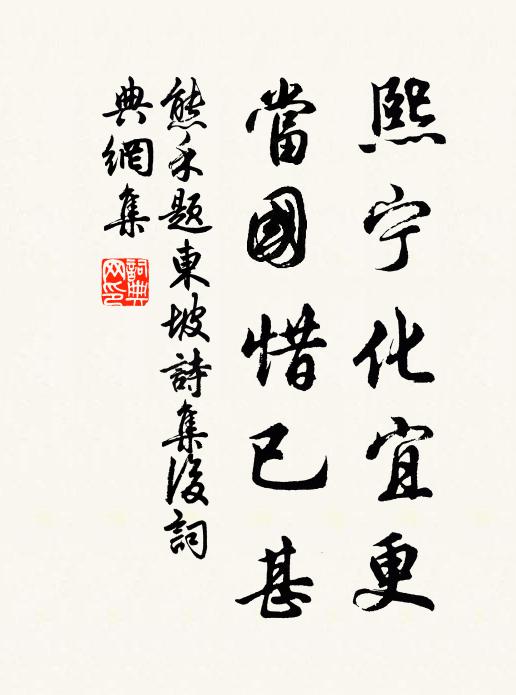 熙宁化宜更
當國惜已甚
熊禾题東坡詩集後詞
典網集
詞典网印